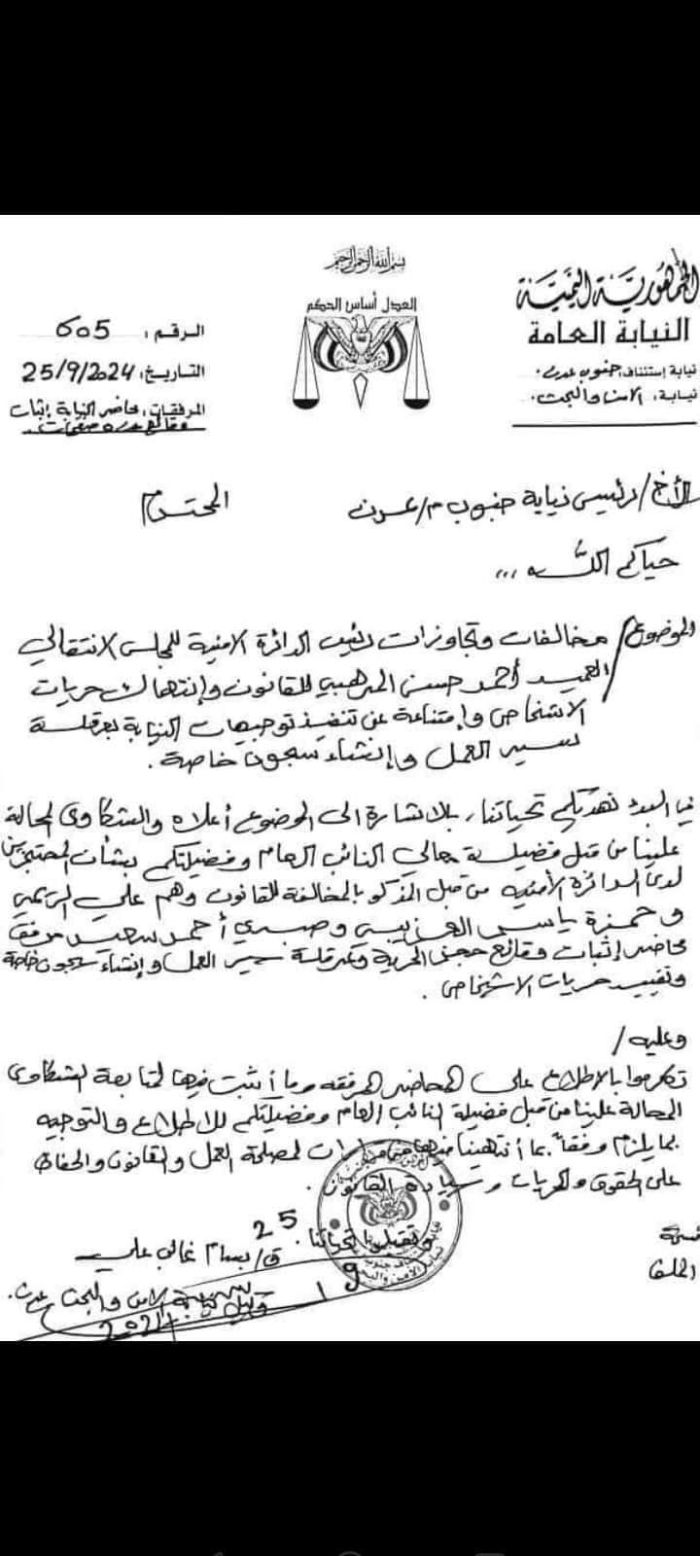 بسم الله الرحمن الرحيم
الجمهورية اليمنية
النيابة العامة
نيابة إستئناف، جنوب عدن.
نيابة، الامن والبحث.
العدل أساس الحكم
الرقم، 605
التاريخ، 25/9/2024
المرفقات، محاضر النيابة إثبات
وقائع
الأخ/ رئيس نيابة جنوب م/عدن المحترم
حياكم الله ...
الموضوع/ مخالفات وتجاوزات رئيس الدائرة الامنية للمجلس الانتقالي
العميد أحمد حسن المرهبي للقانون وإنتهاك حريات
الاشخاص وإمتناعة عن تنفيذ توجيهات النيابة بعرقلة
سير العمل وإنشاء سجون خاصة.
في البدء نهديكم تحياتنا، بالاشارة الى الموضوع أعلاه والشكاوى المحالة
علينا من قبل فضيلة معالي النائب العام وفضيلتكم بشأن المحتجزين
لدى الدائرة الأمنيه من قبل المذكور بالمخالفة للقانون وهم علي الريمي
و حمزة ياسر العزيبي و صبري أحمد سعيد مرفق
محاضر إثبات وقائع حجز الحرية وعرقلة سير العمل وإنشاء سجون خاصة
وتقييد حريات الاشخاص.
وعليه/
تكرموا بالاطلاع على المحاضر المرفقه وما أثبت فيها لمتابعة الشكاوى
المحالة علينا من قبل فضيلة النائب العام وفضيلتكم للاطلاع والتوجيه
بما يلزم وفقاً، بما أنتهينا منها من لمصلحة العمل والقانون والحفاظ
على الحقوق والحريات وسيادة القانون.
وتقبلوا تحياتنا.
ق/ بسام غالب علي
وكيل نيابة الامن والبحث عدن.
25
9
2024
نسخة
الملف